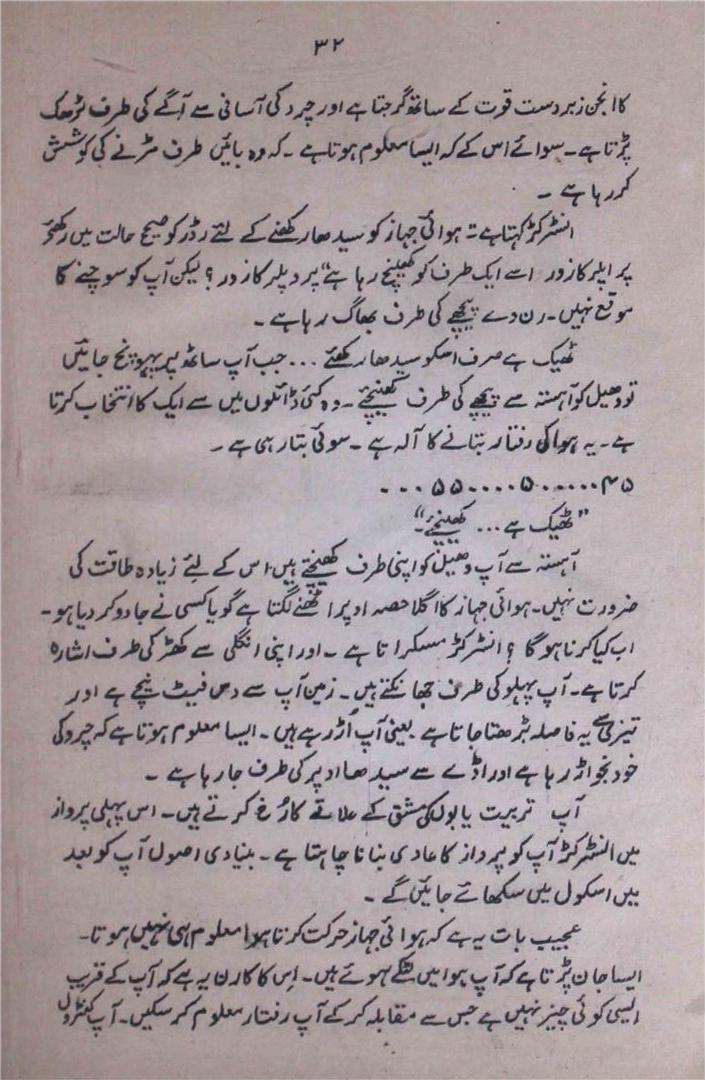 ۳۲
کا انجن زبردست قوت کے ساتھ گرجتا ہے اور چروکی آسانی سے آگے کی طرف لڑھک
پڑتا ہے۔ سوائے اس کے کہ ایسا معلوم ہوتا ہے ۔ کہ وہ بائیں طرف مڑنے کی کوشش
کر رہا ہے ۔
انسٹرکٹر کہتا ہے ۔ ہوائی جہاز کو سیدھا رکھنے کے لئے رڈر کو صحیح حالت میں رکھئے
پراپلر کا زور اسے ایک طرف کو کھینچ رہا ہے" پروپلر کا زور؟ لیکن آپ کو سوچنے کا
موقع نہیں۔ رن دے پیچھے کی طرف بھاگ رہا ہے ۔
ٹھیک ہے صرف اسکو سیدھا رکھئے ... جب آپ ساٹھ پر پہونچ جائیں
تو وھیل کو آہستہ سے پیچھے کی طرف کھینچئے ۔ وہ کئی ڈائلوں میں سے ایک کا انتخاب کرتا
ہے ۔ یہ ہوا کی رفتار بتانے کا آلہ ہے ۔ سوئی بتا رہی ہے ۔
۴۵......۵۰....۵۵...
"ٹھیک ہے ... کھینچئے"
آہستہ سے آپ وھیل کو اپنی طرف کھینچتے ہیں اس کے لئے زیادہ طاقت کی
ضرورت نہیں۔ ہوائی جہاز کا اگلا حصہ اوپر اٹھنے لگتا ہے گویا کسی نے جادو کر دیا ہو۔
اب کیا کرنا ہوگا ؟ انسٹرکٹر مسکراتا ہے ۔ اور اپنی انگلی سے کھڑکی طرف اشارہ
کرتا ہے۔ آپ پہلو کی طرف جھانکتے ہیں ۔ زمین آپ سے دس فیٹ نیچے ہے اور
تیزی سے یہ فاصلہ بڑھتا جاتا ہے یعنی آپ اُڑ رہے ہیں ۔ ایسا معلوم ہوتا ہے کہ چروکی
خود بخود اڑ رہا ہے اور اڈے سے سیدھا اوپر کی طرف جا رہا ہے ۔
آپ تربیت یا بول کی مشق کے علاقے کا رُخ کرتے ہیں۔ اس پہلی پرواز
میں انسٹرکٹر آپ کو پرواز کا عادی بنانا چاہتا ہے ۔ بنیادی اصول آپ کو بعد
میں اسکول میں سکھائے جائیں گے ۔
عجیب بات یہ ہے کہ ہوائی جہاز حرکت کرتا ہوا معلوم ہی نہیں ہوتا۔
ایسا جان پڑتا ہے کہ آپ ہوا میں لٹکے ہوئے ہیں۔ اس کا کارن یہ ہے کہ آپ کے قریب
ایسی کوئی چیز نہیں ہے جس سے مقابلہ کر کے آپ رفتار معلوم کر سکیں۔ آپ کنٹرول